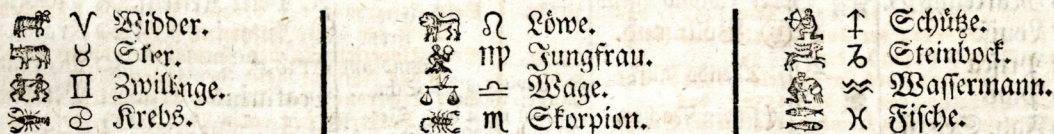 ♈ Widder.
♉ Stier.
♊ Zwillinge.
♋ Krebs.
♌ Löwe.
♍ Jungfrau.
♎ Wage.
♏ Skorpion.
♐ Schütze.
♑ Steinbock.
♒ Wassermann.
♓ Fische.